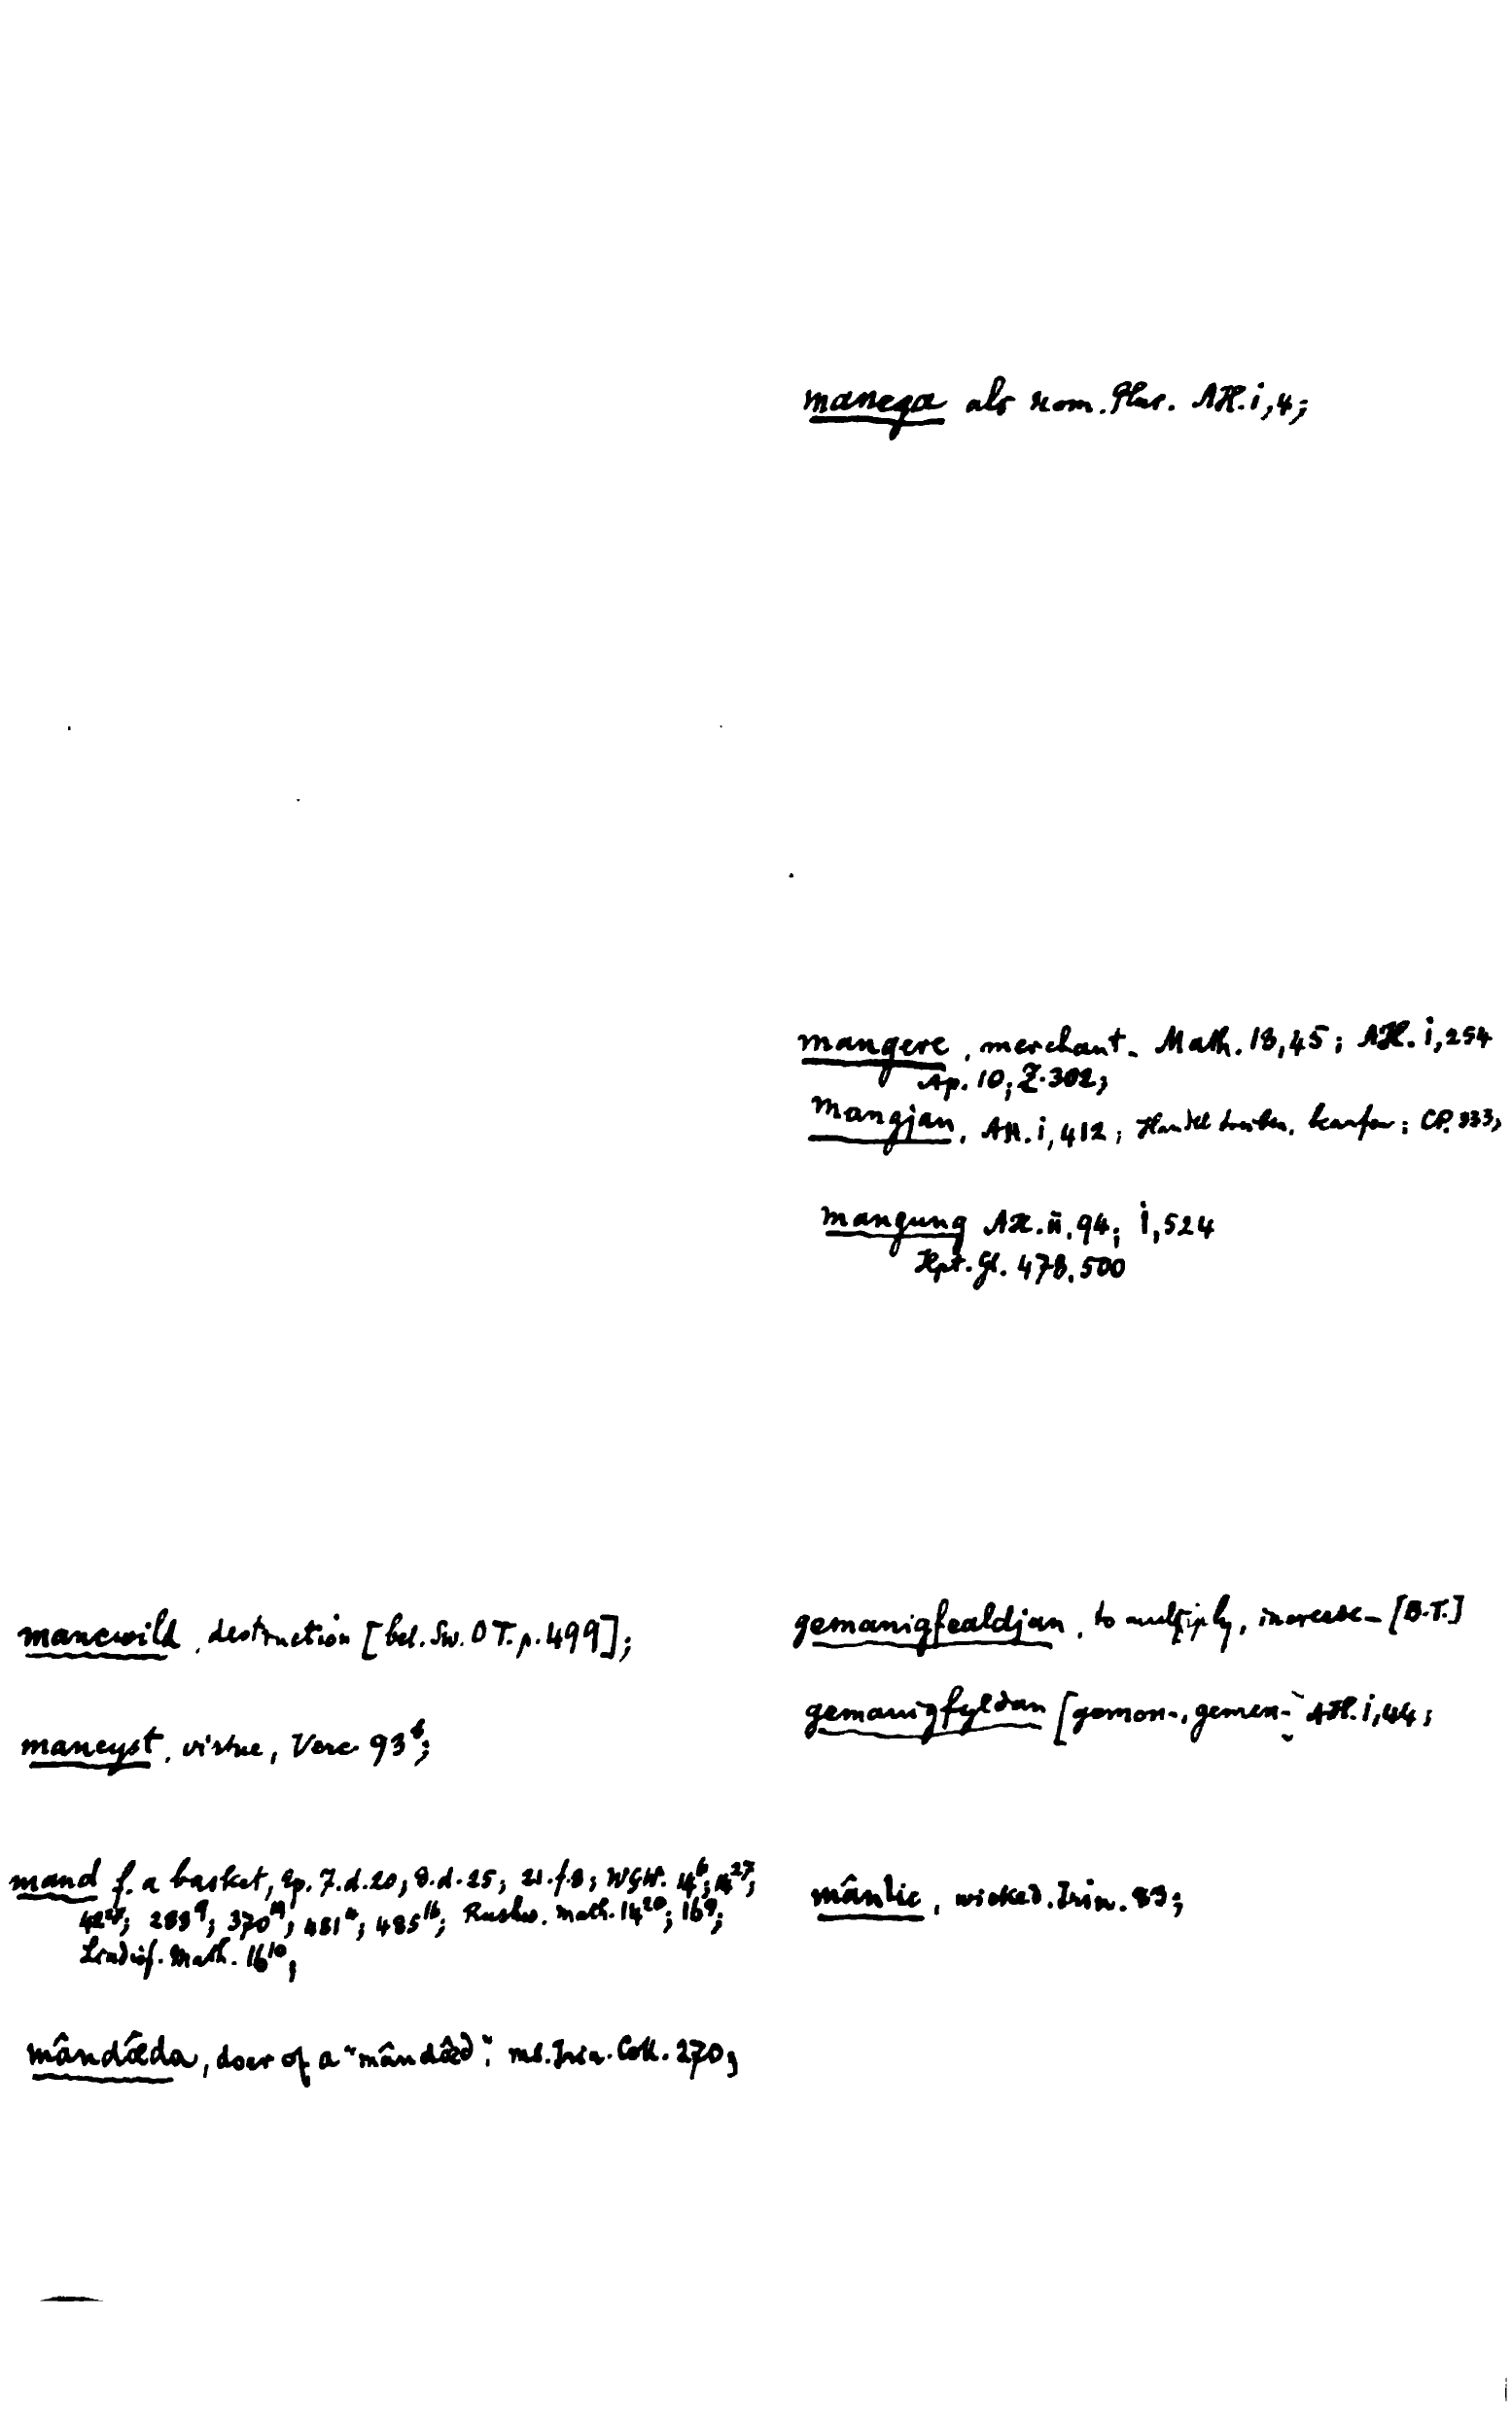 mancwild, destruction [bel. Sw. OT. p. 499];
mancyst, virtue, Verc. 93⁶;
mand f. a basket, Ep. 7.d.20; 8.d.25; 21.f.8; WGW. 14⁶; 14²⁷;
289⁹; 370¹⁹; 481⁴; 485¹⁶; Rushw. Math. 14²⁰; 16⁹;
Lindisf. Math. 16¹⁰;
mândǣda, doer of a "mândǣd"; ms. Trin. Coll. 270;
manega als nom. Plur. AH. i, 4;
mangere, merchant. Math. 13,45; AH. i, 254
Ap. 10; Z. 302;
mangjan, AH. i, 412; Handel treiben, kaufen; CP. 333;
mangung AH. ii, 94; i, 524
Hpt. Gl. 478, 500
gemanigfealdjan, to multiply, increase – [B.T.]
gemanigfyldan [gemon-, gemen- AH. i, 44;
mânlic, wicked. Trin. 83;